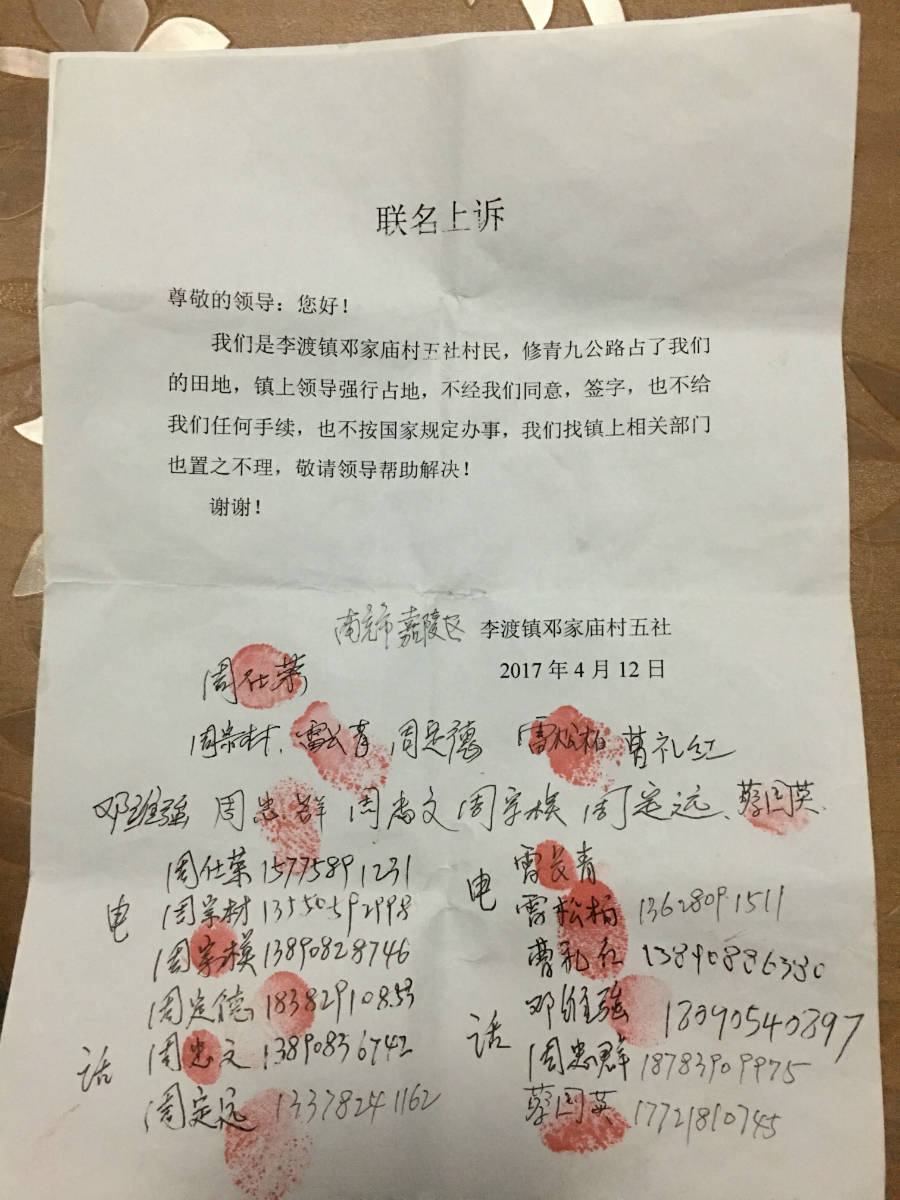 联名上诉
尊敬的领导：您好！
我们是李渡镇邓家庙村五社村民，修青九公路占了我们
的田地，镇上领导强行占地，不经我们同意，签字，也不给
我们任何手续，也不按国家规定办事，我们找镇上相关部门
也置之不理，敬请领导帮助解决！
谢谢！
南充市嘉陵区 李渡镇邓家庙村五社
2017 年 4 月 12 日
周仕荣
周宗材、雷长青 周定德 雷松柏 曹礼红
邓维强 周忠群 周忠文 周宗模 周定远、蔡国英
电
话
周仕荣 15775891231
周宗材 13550592998
周宗模 13890828746
周定德 18382910853
周忠文 13890836742
周定远 13378241162
电
话
雷长青
雷松柏 13628091511
曹礼红 13890886330
邓维强 18090540897
周忠群 18783909975
蔡国英 17721810745